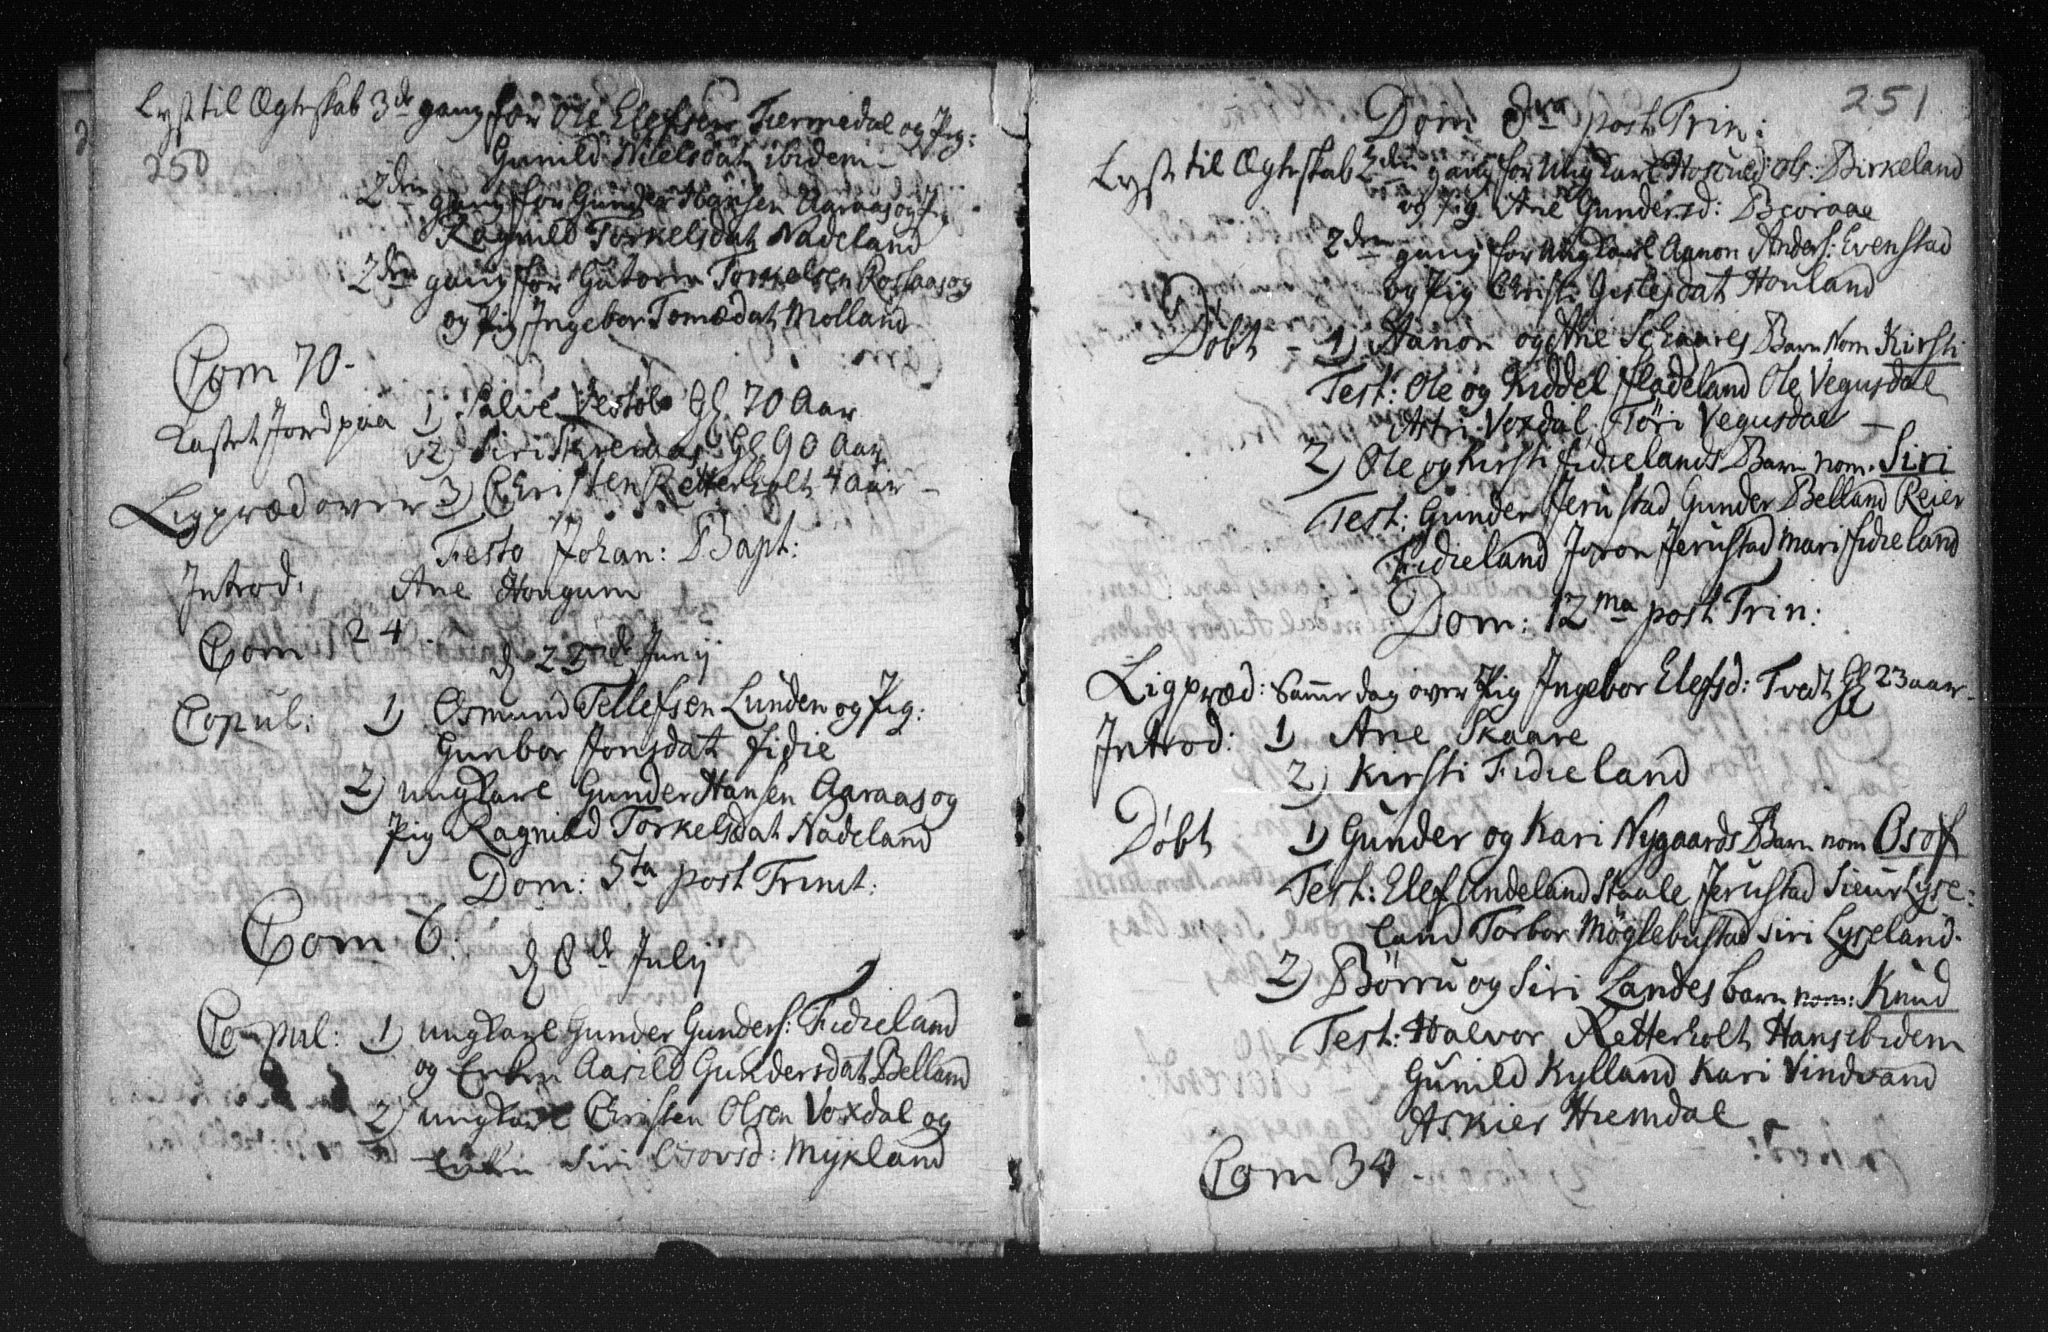 Lyst til Ægteskab 3de gang for Ole Elefsen Tiermedal og Pig:
250
Gunild Nielsdat ibidem
2den gang for Gunder Hansen Aaraas og Pig
Ragnild Torkelsdat Nadeland
2den gang for Torkelsen Rossaas og
og Pig Ingebor Tomædat Molland
Com 70
Kastet Jord paa 1) Salve Vestøl Gl. 70 Aar
2) Siri Gl. 90 Aar
Ligpræd over 3) Christen Retterholt 4 aar
Festo Johan: Bapt:
Introd: Ane Hougum
Com 24
d 23de Junij
Copul: 1) Osmund Tellefsen Lunden og Pig:
Gunbor Jonsdat Fidie
2) ungkarl Gunder Hansen Aaraas og
Pig Ragnild Torkelsdat Nadeland
Dom: 5ta post Trinit:
Com 6:
d 8de Julij
Copul: 1) ungkarl Gunder Gunders: Fidieland
og Enken Aasild Gundersdat Belland
2) ungkarl Christen Olsen Voxdal og
Enken Siri Osovsd: Mykland
251
Dom 8va post Trin:
Lyst til Ægteskab gang for Ungkarl Hoskuld Ols: Birkeland
og Pig Ane Gundersd: Beoraae
2den gang for Ungkarl Aanon Anders: Evenstad
og Pig Christi Houland
Døbt - 1) Aanon og Ane Schaares Barn Nom Kirsti
Test: Ole og Kiddel Fladeland Ole Vegusdal
Astri Voxdal Töri Vegusdal
2) Ole og Kirsti Fidielands Barn nom. Siri
Test: Gunder Jerustad Gunder Belland Reier
Fidieland Joron Jerustad Mari Fidieland
Dom: 12ma post Trin:
Ligpræd: Samme dag over Pig Ingebor Elefsd: Tvedt Gl 23 aar
Introd: 1) Ane Skaare
2) Kirsti Fidieland
Døbt 1) Gunder og Kari Nygaards Barn nom Osof
Test: Elef Undeland Staale Jerustad Sieur Lyse=
land Torbor Møglebustad Siri Lyseland.
2) Børru og Siri Landes barn nom: Knud
Test: Halvor Retterholt Hans ibidem
Gunild Kylland Kari Vindvand
Askier Hiemdal
Com 34